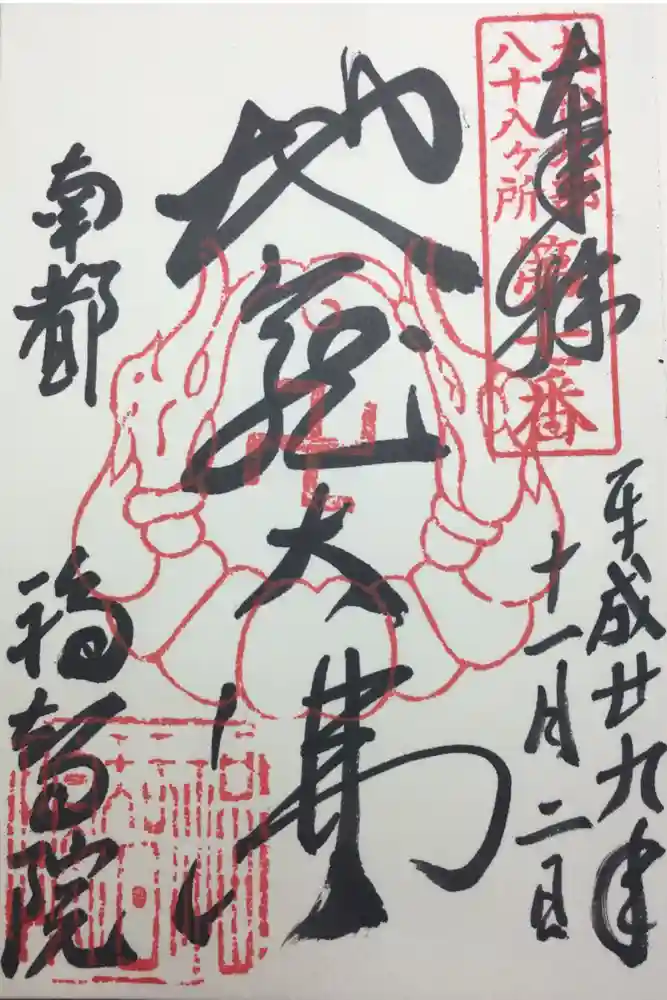 奉拝
大和北部
八十八ヶ所
番
平成廿九年
十一月二日
地蔵大佛
卍
南都
福智院